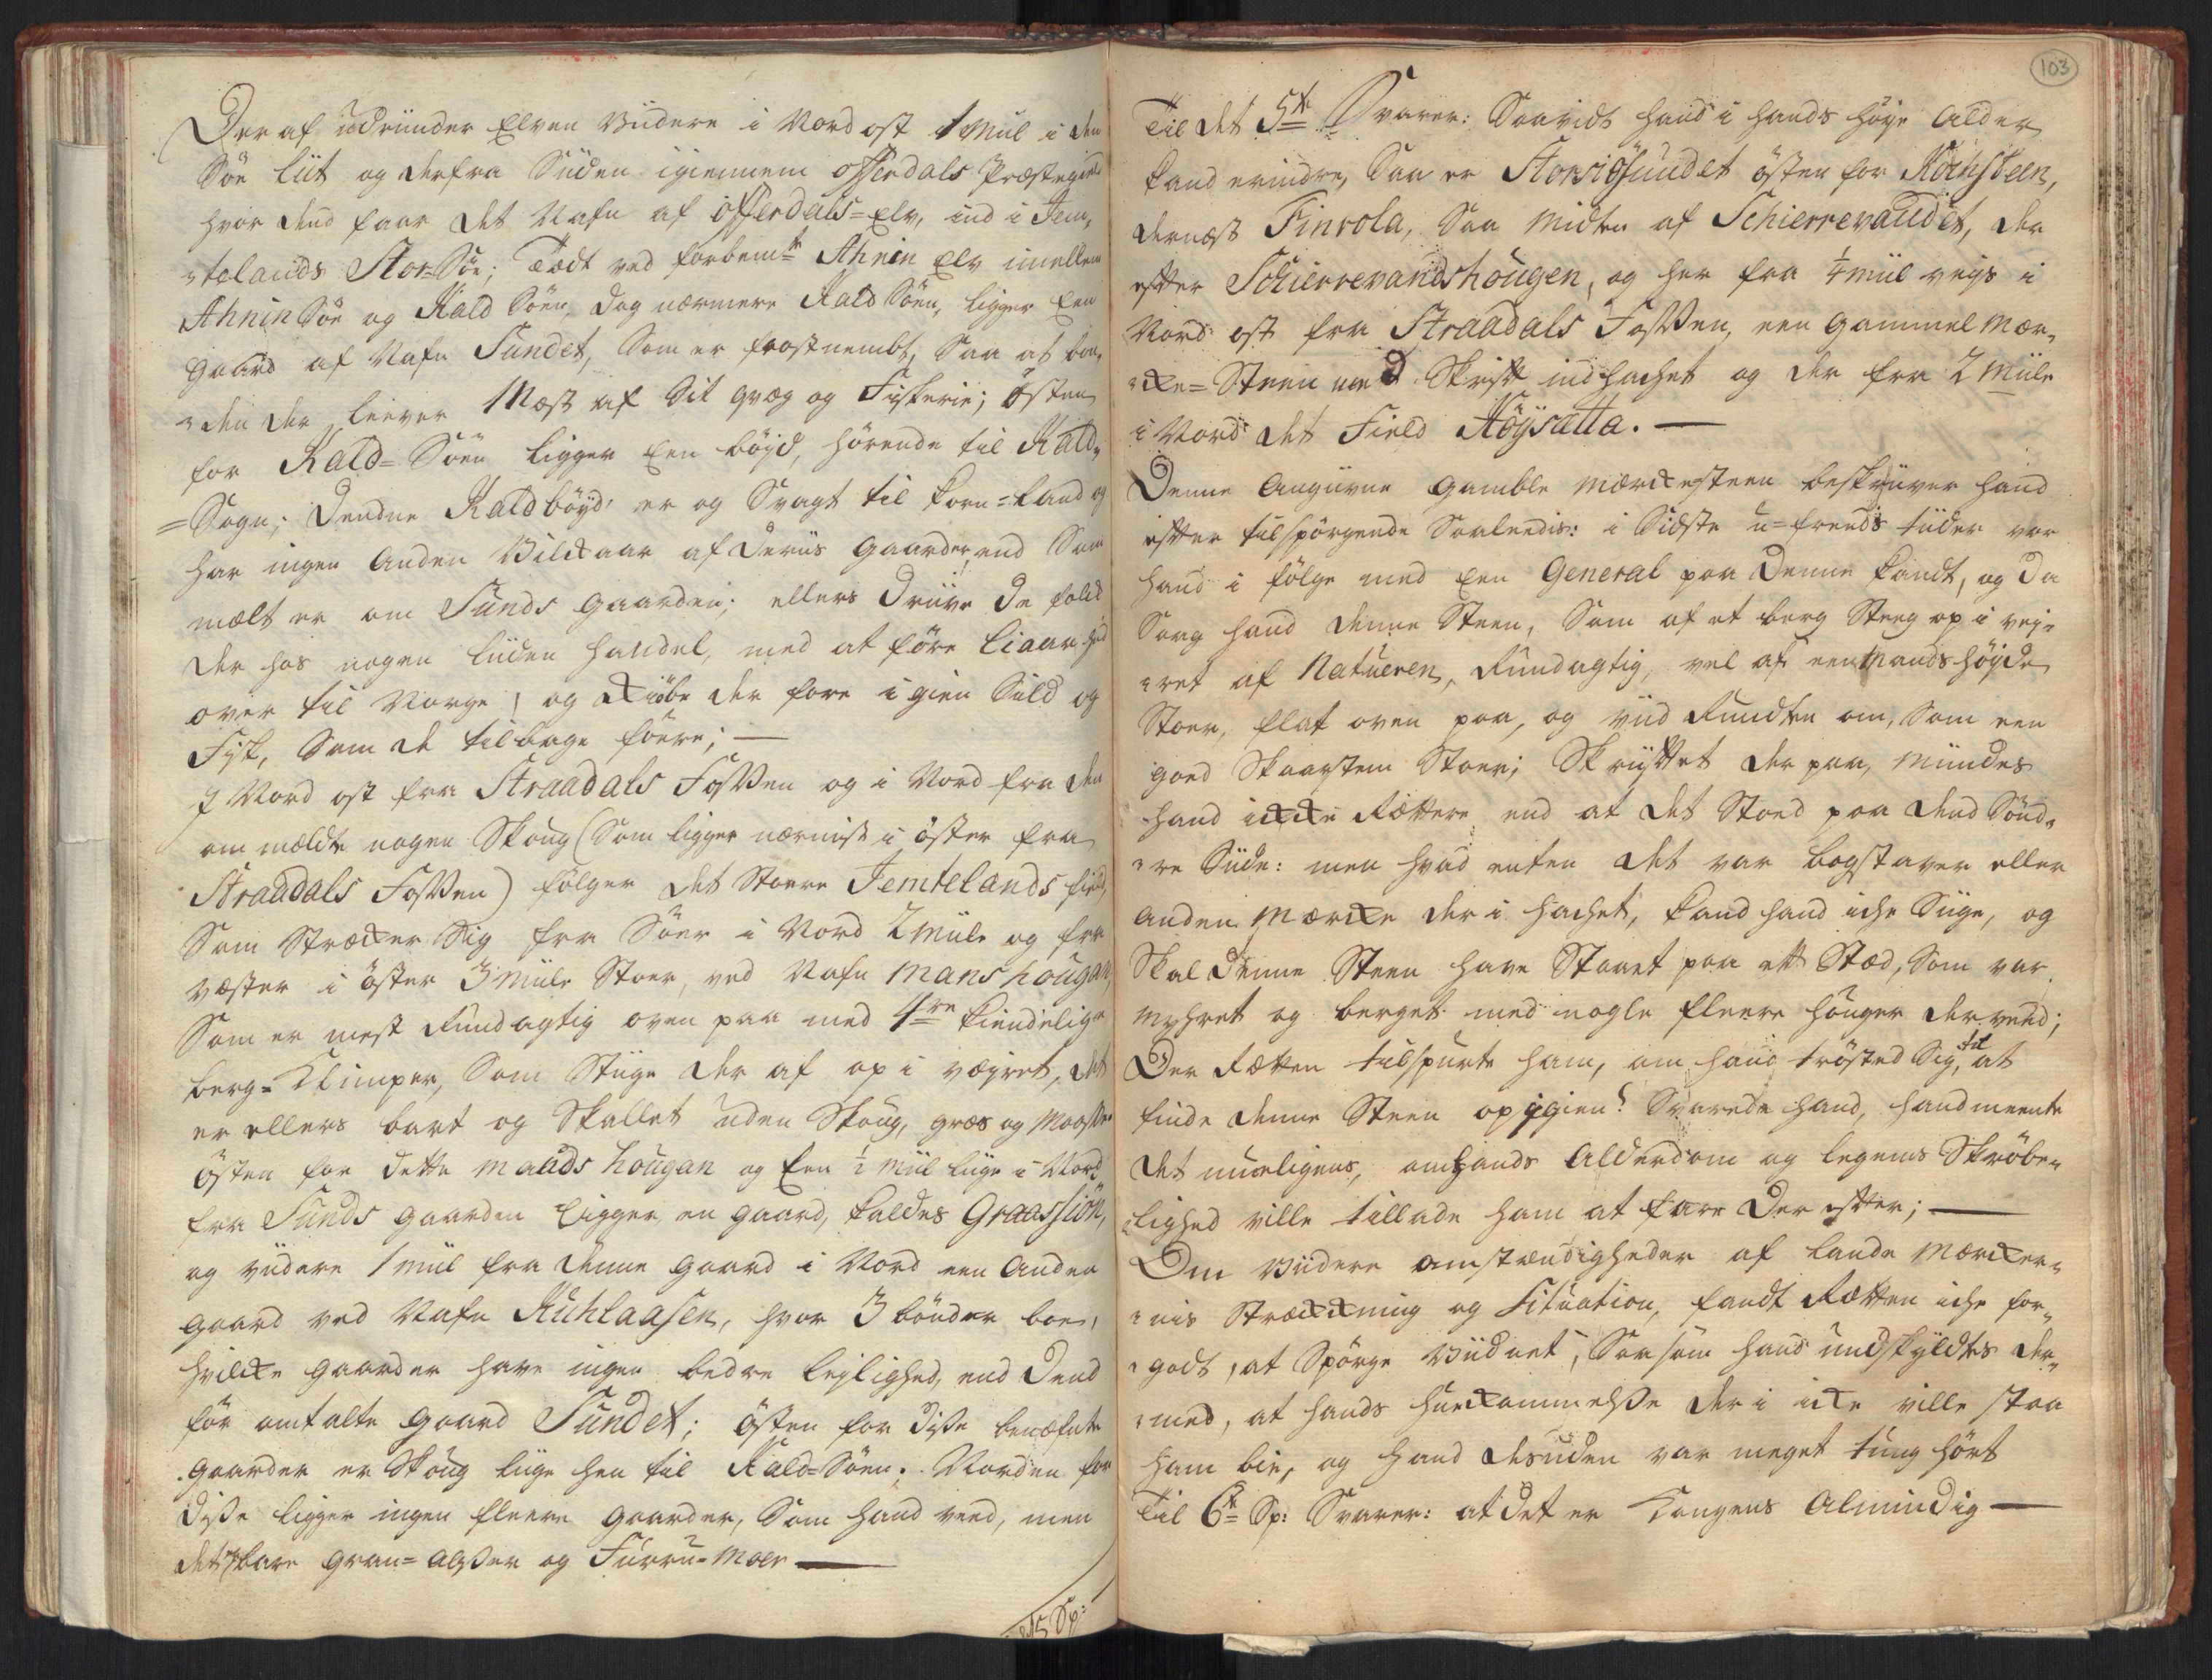 Der af udrinder Elven Viidere i Nord ost 1 Miil i den
Söe Liit og derfra Süden igiennem offerdals Præstegield
hvor dend faar det Nafn af offerdals=Elv, ind i Jem,
,telands Stor=Söe; Tædt ved forbemte Ahnin Elv imellem
Ahnin Söe og Kald Söen, dog nærmere Kald Söen, ligger Een
Gaard af Nafn Sundet, Som er frostnembt, Saa at bön,
,den der leever Mæst af Sit qvæg og Fiskerie; östen
for Kald=Söen ligger Een böyd, hörende til Kald,
=Sogn; Dendne Kaldböyd er og Svagt til korn=land og
har ingen Anden Vilckaar af deris gaarder, end Som
mælt er om Sunds gaarden; ellers Driive De folck
der hos nogen liiden handel, med at före Liaar hid
over til Norge, og kiöbe der fore igien Sild og
Fisk, Som de tilbage föere; —
I Nord ost fra Straadals Fossen og i Nord fra den
om mældte nogen Skoug (Som ligger nærmist i öster fra
Straadals Fossen) fölger det Stoere Jemtelands field,
Som Strecker Sig fra Söer i Nord 2 Miile og fra
væster i öster 3 Miile Stoer, ved Nafn Manshougan,
Som er mest Rundagtig oven paa med 4re kiendelige
berg=Klimper, Som Stiige der af op i væyret, det
er ellers bart og Skallet uden Skoug, græs og Maasse
östen for dette Mands hougan og Een ½ Miil liige i Nord
fra Sunds gaarden Ligger en gaard, kaldes Graassiön,
og viidere 1 Miil fra denne gaard i Nord een Anden
gaard ved Nafn Kuhlaasen, hvor 3 bönder boer,
hvilcke gaarder have ingen bedre leylighed, end Dend
för omtalte gaard Sundet; östen for diße benæfnte
gaarder er Skoug liige hen til Kald=Söen; Norden for
diße ligger ingen fleere gaarder, Som hand veed, men
det er bare gran=alßer og Furru=Moer —
5 Sp:
103
Til det 5te Svarer: Saavidt hand i hands höye Alder
kand erindre, Saa er Storsiösundet östen for Rochsteen,
dernæst Finvola, Saa midten af Schierrevandet, der
efter Schierrevandshougen, og her fra ¼ Miil veys i
Nord ost fra Straadals Fossen, een Gammel Mær,
,cke=Steen med Skrift indhachet og der fra 2 Miile
i Nord det Field Höysatta. —
Denne Angiivne gamble Mærckesteen beskriiver hand
efter tilspörgende Saaleedis: i Sidste u=freds tiider var
hand i fölge med Een General paa denne kandt, og da
Saag hand denne Steen, Som af et berg Steeg op i vey,
,ret af Natueren, Rundagtig, vel af een Mands höyde
Stoer, flat oven paa, og viid Rundten om, Som een
goed Skaarsteen Stoer; Skriftet der paa, Mindes
hand icke Rættere end at det Stoed paa dend Sönd,
,re Siide: men hvad enten det var bogstaver eller
Anden Mærcke der i hachet, kand hand iche Siige, og
Skal denne Steen have Staaet paa ett Stæd, Som var
Myhret og berget med nogle fleere houger der veed;
Der Rætten tilspurte ham, om hand tröstede Sig til at
finde denne Steen op igien? Svarede hand, hand meente
det mueligens, om hands Alderdom og legems Skröbe,
,lighed ville tillade ham at fare der efter; —
Om viidere omstændigheder af Lande Mærcker,
,nis Streckning og Situation, fandt Rætten iche for,
,godt, at Spörge Viidnet, Saasom hand undskyldte der,
,med, at hands hueckommelße der i icke ville staa
ham bie, og hand desuden var meget tung hört
Til 6te Sp: Svarer: at det er Kongens Almindig —